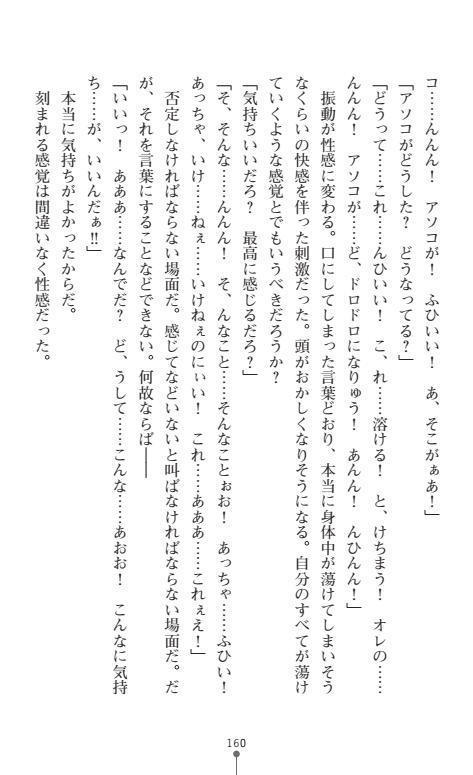 コ……んんん！　アソコが！　ふひいい！　あ、そこがぁあ！」
「アソコがどうした？　どうなってる？」
「どうって……これ……んひいい！　こ、れ……溶ける！　と、けちまう！　オレの……
んんん！　アソコが……ど、ドロドロになりゅう！　あんん！　んひんん！」
　振動が性感に変わる。口にしてしまった言葉どおり、本当に身体中が蕩けてしまいそう
なくらいの快感を伴った刺激だった。頭がおかしくなりそうになる。自分のすべてが蕩け
ていくような感覚とでもいうべきだろうか？
「気持ちいいだろ？　最高に感じるだろ？」
「そ、そんな……んんん！　そ、んなこと……そんなことぉお！　あっちゃ……ふひい！
あっちゃ、いけ……ねぇ……いけねぇのにぃい！　これ……あああ……これぇえ！」
　否定しなければならない場面だ。感じてなどいないと叫ばなければならない場面だ。だ
が、それを言葉にすることなどできない。何故ならば――
「いいっ！　あああ……なんでだ？　ど、うして……こんな……あおお！　こんなに気持
ち……が、いいんだぁ!!」
　本当に気持ちがよかったからだ。
　刻まれる感覚は間違いなく性感だった。
160